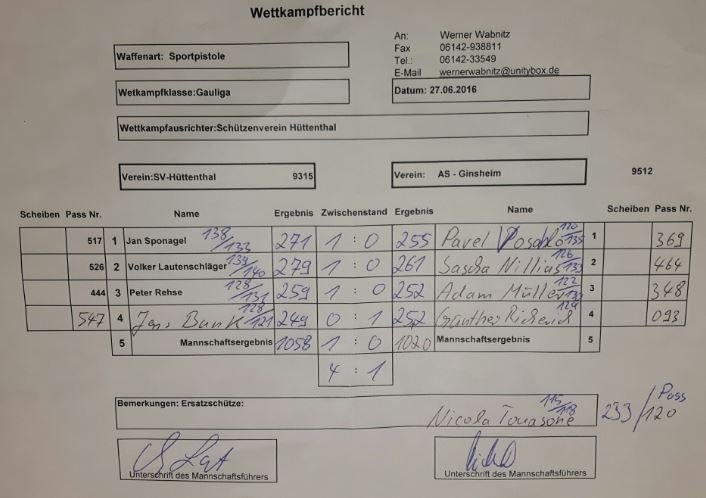 Wettkampfbericht
An: Werner Wabnitz
Fax 06142-938811
Tel.: 06142-33549
E-Mail wernerwabnitz@unitybox.de
Waffenart: Sportpistole
Wetkampfklasse:Gauliga
Datum: 27.06.2016
Wettkampfausrichter:Schützenverein Hüttenthal
Verein:SV-Hüttenthal 9315
Verein: AS - Ginsheim 9512
Scheiben Pass Nr. Name Ergebnis Zwischenstand Ergebnis Name Scheiben Pass Nr.
517 1 Jan Sponagel 138/133 271 1 : 0 255 Pavel 120/135 1 369
526 2 Volker Lautenschläger 139/140 279 1 : 0 261 Sascha Nillius 126/135 2 464
444 3 Peter Rehse 128/131 259 1 : 0 252 Adam Müller 122/130 3 348
547 4 Jens Bunk 128/121 249 0 : 1 252 Günther 124 4 093
5 Mannschaftsergebnis 1058 1 : 0 1020 Mannschaftsergebnis 5
4 : 1
Bemerkungen: Ersatzschütze:
Nicola Touasone 115/118 233/120 Pass
Unterschrift des Mannschaftsführers
Unterschrift des Mannschaftsführers